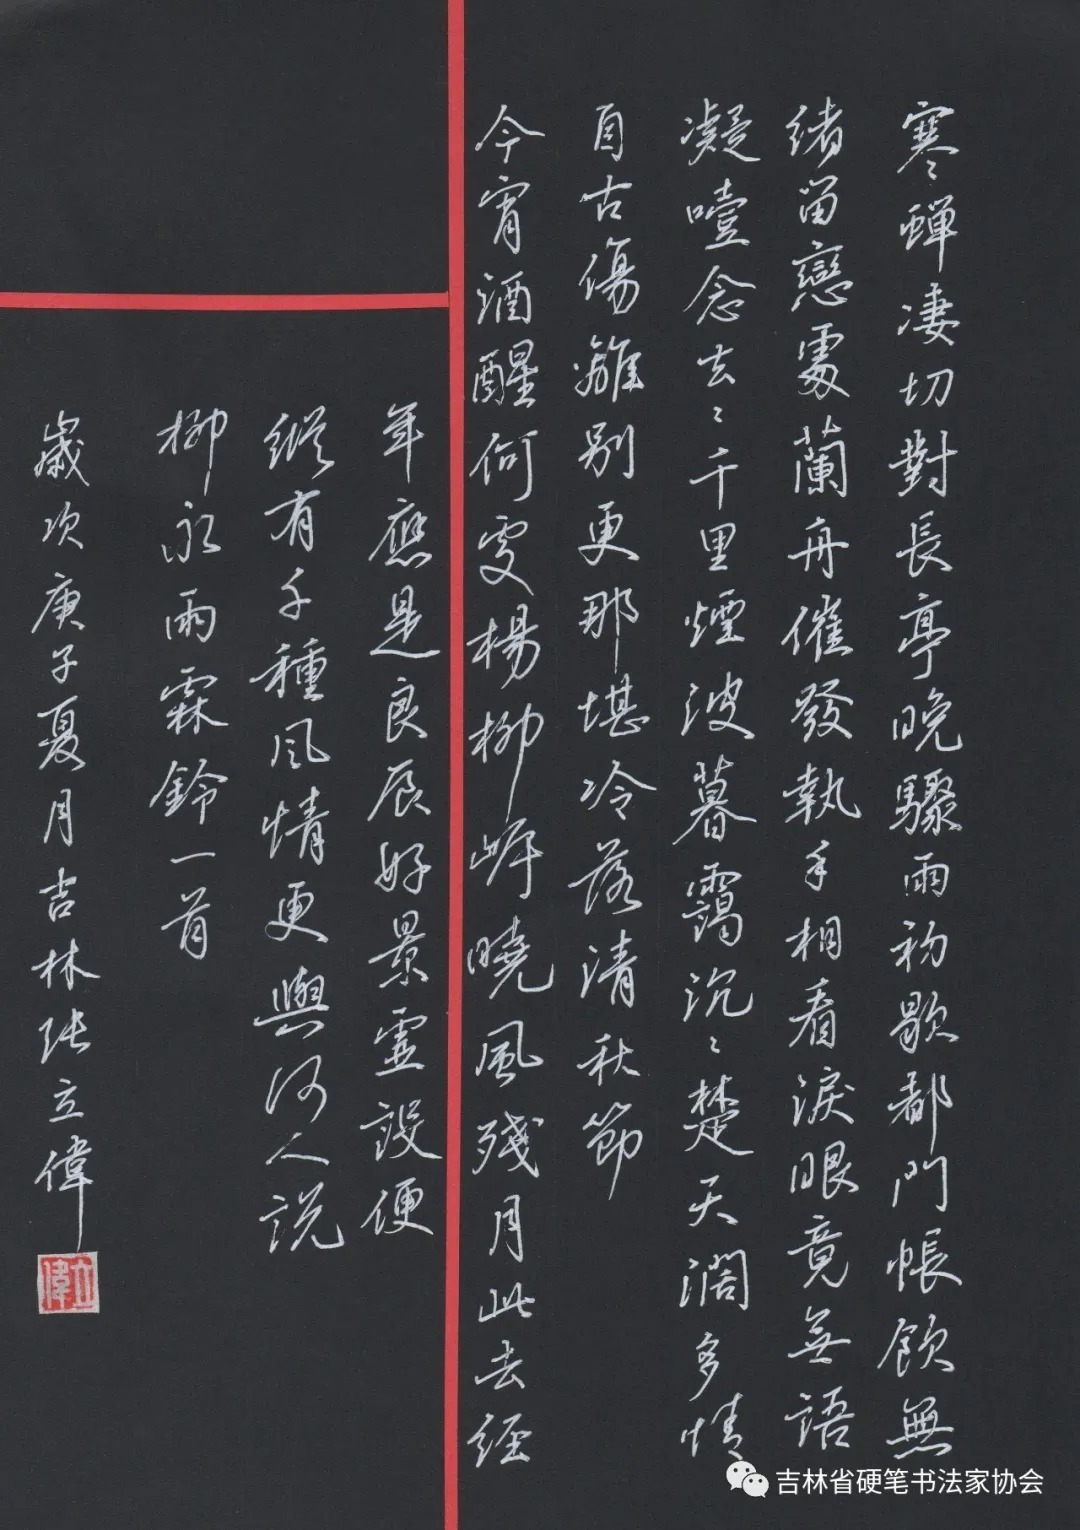 寒蟬凄切對長亭晚驟雨初歇都門帳飲無
緒留戀處蘭舟催發執手相看淚眼竟無語
凝噎念去〻千里煙波暮靄沉〻楚天濶多情
自古傷離別更那堪冷落清秋節
今宵酒醒何處楊柳岸曉風殘月此去經
年應是良辰好景虛設便
縱有千種風情更與何人説
柳永雨霖鈴一首
歲次庚子夏月吉林张立偉
立偉
吉林省硬笔书法家协会